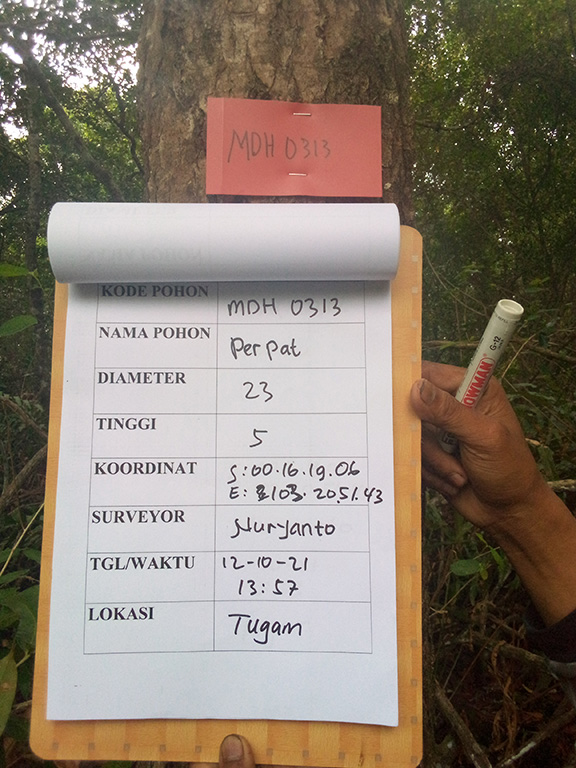 MDH 0313
KODE POHON MDH 0313
NAMA POHON Perpat
DIAMETER 23
TINGGI 5
KOORDINAT S:00.16.19.06
E: 103.20.51.43
SURVEYOR Nuryanto
TGL/WAKTU 12-10-21
13:57
LOKASI Tugam
OWMAN G-12